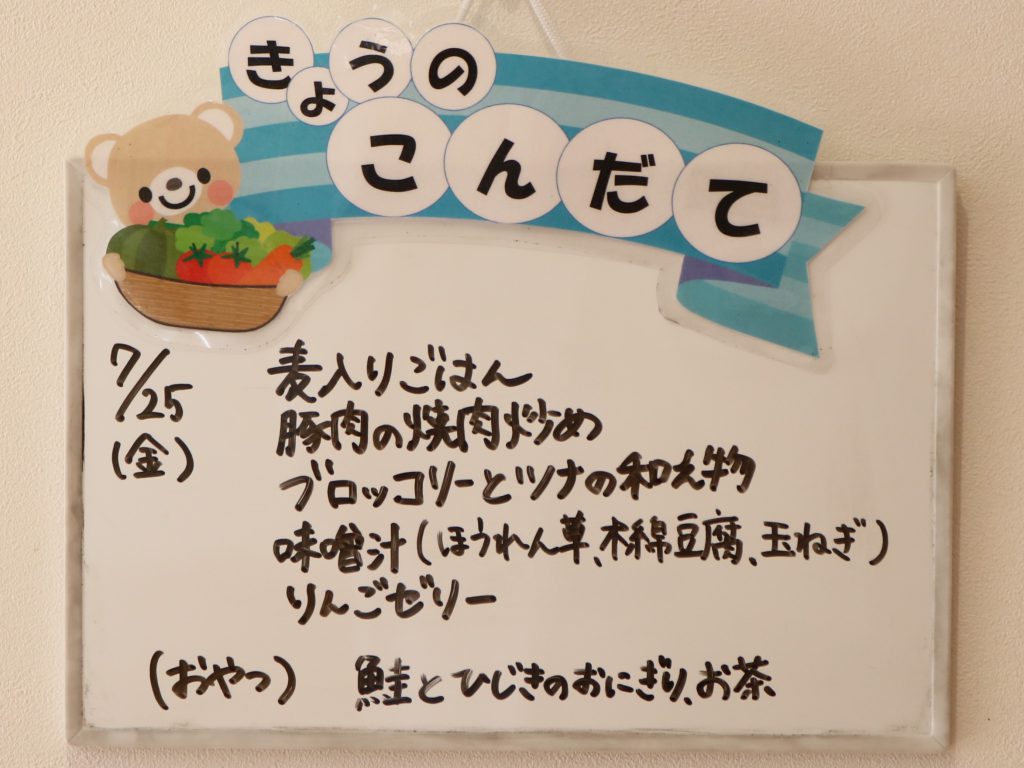 きょうの
こんだて
7/25
(金)
麦入りごはん
豚肉の焼肉炒め
ブロッコリーとツナの和え物
味噌汁(ほうれん草、木綿豆腐、玉ねぎ)
りんごゼリー
(おやつ) 鮭とひじきのおにぎり、お茶